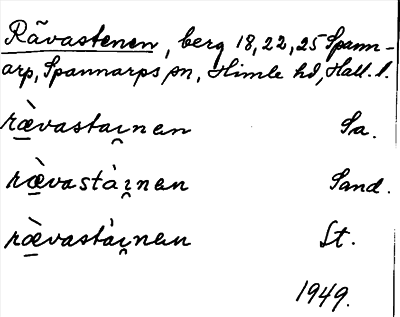 Rävastenen, berg 18,22,25 Spann-
arp, Spannarps sn, Himle hd, Hall. l.
ræ̀vastaı̯nen Sa.
ræ̀vastàı̯nen Sand.
ræ̀vastàı̯nen St.
1949.